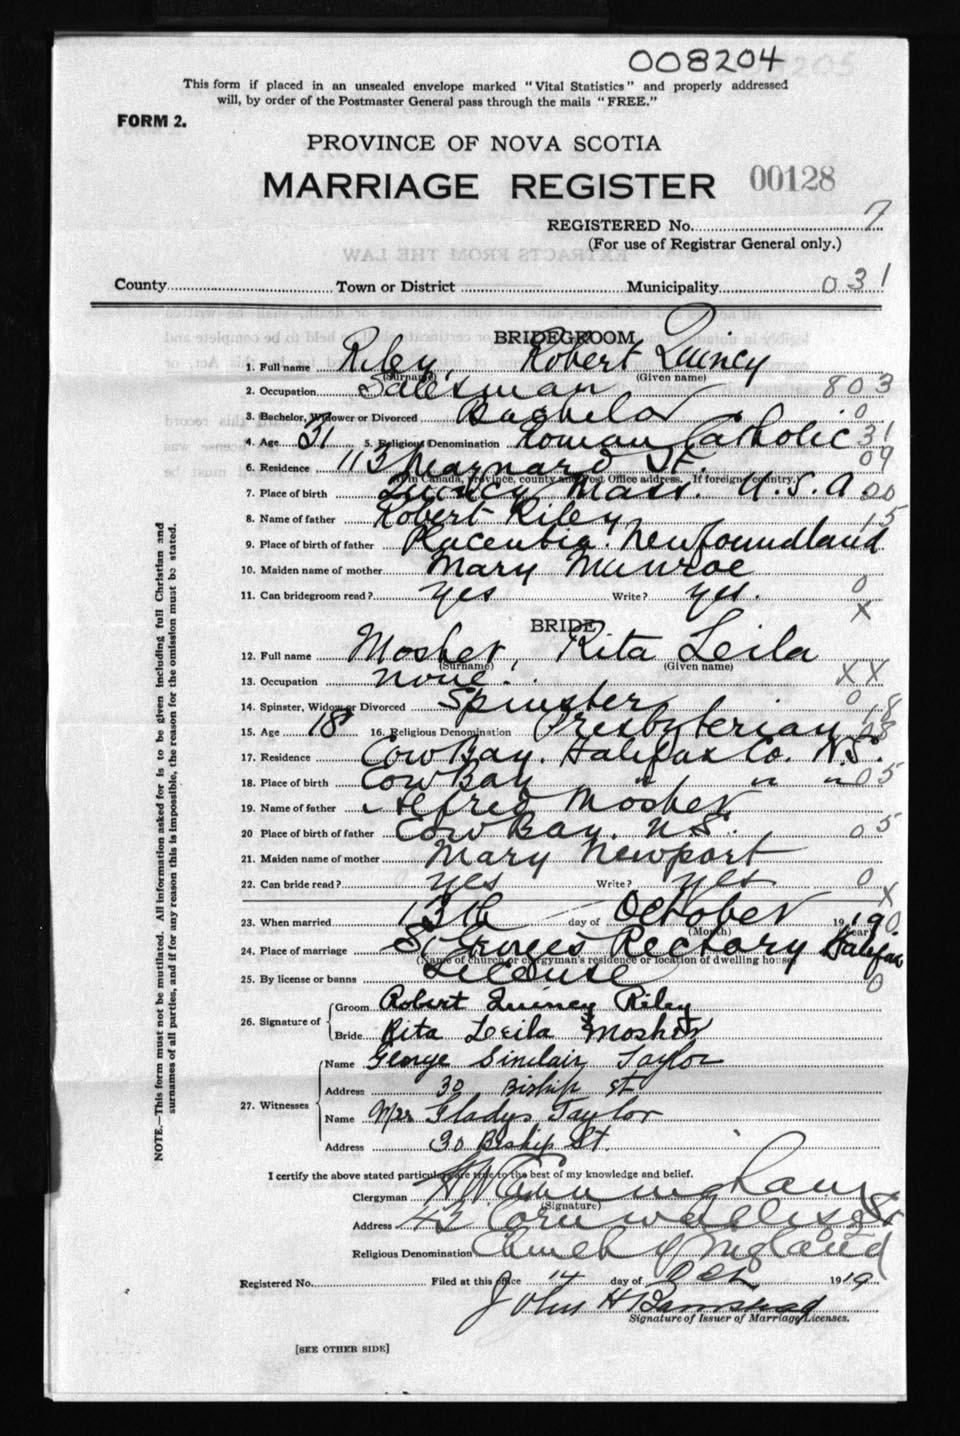 008204
This form if placed in an unsealed envelope marked "Vital Statistics" and properly addressed
will, by order of the Postmaster General pass through the mails "FREE."
FORM 2.
PROVINCE OF NOVA SCOTIA
MARRIAGE REGISTER 00128
REGISTERED No. 7
(For use of Registrar General only.)
County Town or District Municipality 031
BRIDEGROOM
1. Full name Riley, Robert Quincy
(Surname) (Given name)
2. Occupation Salesman 803
3. Bachelor, Widower or Divorced Bachelor 0
4. Age 31 5. Religious Denomination Roman Catholic 31
6. Residence 113 Maynard St. 09
If in Canada, province, county and Post Office address. If foreign country.)
7. Place of birth Quincy Mass. U.S.A 00
8. Name of father Robert Riley 15
9. Place of birth of father Newfoundland
10. Maiden name of mother Mary Munroe
11. Can bridegroom read? yes Write? yes. 0
X
BRIDE
12. Full name Mosher, Rita Leila
(Surname) (Given name)
13. Occupation none. XX
14. Spinster, Widow or Divorced Spinster 0
15. Age 18 16. Religious Denomination Presbyterian 18
17. Residence Cow Bay. Halifax Co. N.S. 28
18. Place of birth Cow Bay " " " 05
19. Name of father Alfred Mosher
20 Place of birth of father Cow Bay. N.S. 05
21. Maiden name of mother Mary Newport
22. Can bride read? yes Write? yes 0
X
23. When married 13th day of October 1919 0
(Month) (Year)
24. Place of marriage St Georges Rectory Halifax
(Name of church or clergyman's residence or location of dwelling house)
25. By license or banns License 0
26. Signature of
Groom Robert Quincy Riley
Bride Rita Leila Mosher
27. Witnesses
Name George Sinclair Taylor
Address 30 Biship St
Name Mrs Gladys Taylor
Address 30 Biship St.
I certify the above stated particulars are true to the best of my knowledge and belief.
Clergyman H W Cunningham
(Signature)
Address 42 Cornwallis St
Religious Denomination Church of England
Registered No. Filed at this office 14 day of Oct 1919
John H Barnstead
Signature of Issuer of Marriage Licenses.
[SEE OTHER SIDE]
NOTE.—This form must not be mutilated. All information asked for is to be given including full Christian and
surnames of all parties, and if for any reason this is impossible, the reason for the omission must be stated.